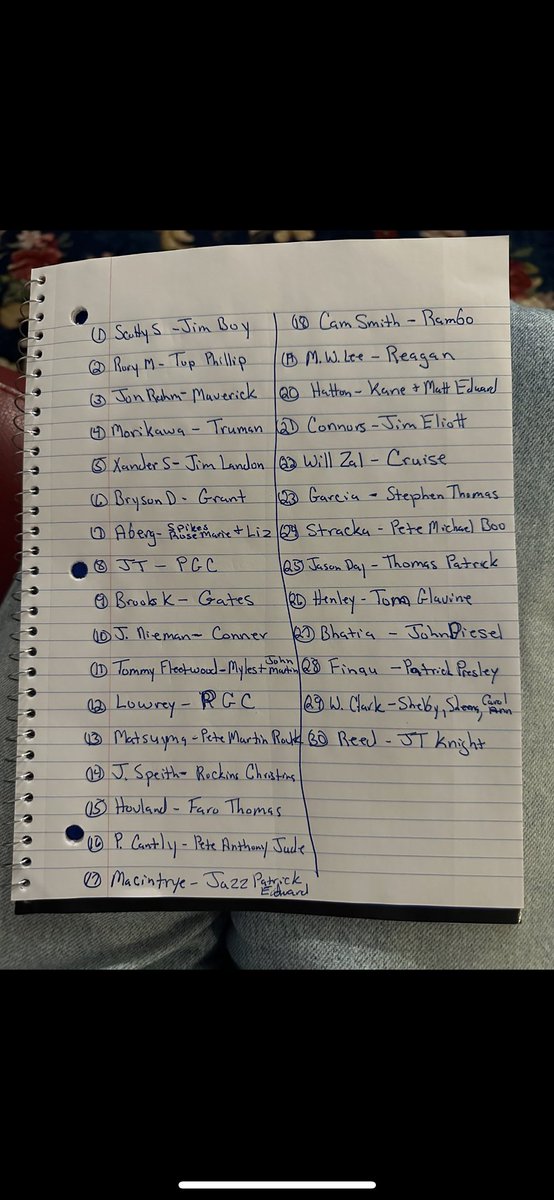 ① Scotty S - Jim Boy
② Rory M - Tup Phillip
③ Jon Rahm - Maverick
④ Morikawa - Truman
⑤ Xander S - Jim Landon
⑥ Bryson D - Grant
⑦ Aberg - Spikes Rose Marie + Liz
⑧ JT - PGC
⑨ Brooks K - Gates
⑩ J. Nieman - Conner
⑪ Tommy Fleetwood - Myles + John Martin
⑫ Lowrey - RGC
⑬ Matsuyma - Pete Martin
⑭ J. Speith - Rockins Christins
⑮ Hovland - Faro Thomas
⑯ P. Cantly - Pete Anthony Jude
⑰ Macintrye - Jazz Patrick Edward
⑱ Cam Smith - Rambo
⑲ M.W. Lee - Reagan
⑳ Hatton - Kane + Matt Edward
㉑ Connors - Jim Eliott
㉒ Will Zal - Cruise
㉓ Garcia - Stephen Thomas
㉔ Stracka - Pete Michael Boo
㉕ Jason Day - Thomas Patrick
㉖ Henley - Tom Glavine
㉗ Bhatia - John Diesel
㉘ Finau - Patrick Presley
㉙ W. Clark - Shelby, Carol Ann
㉚ Reed - JT Knight